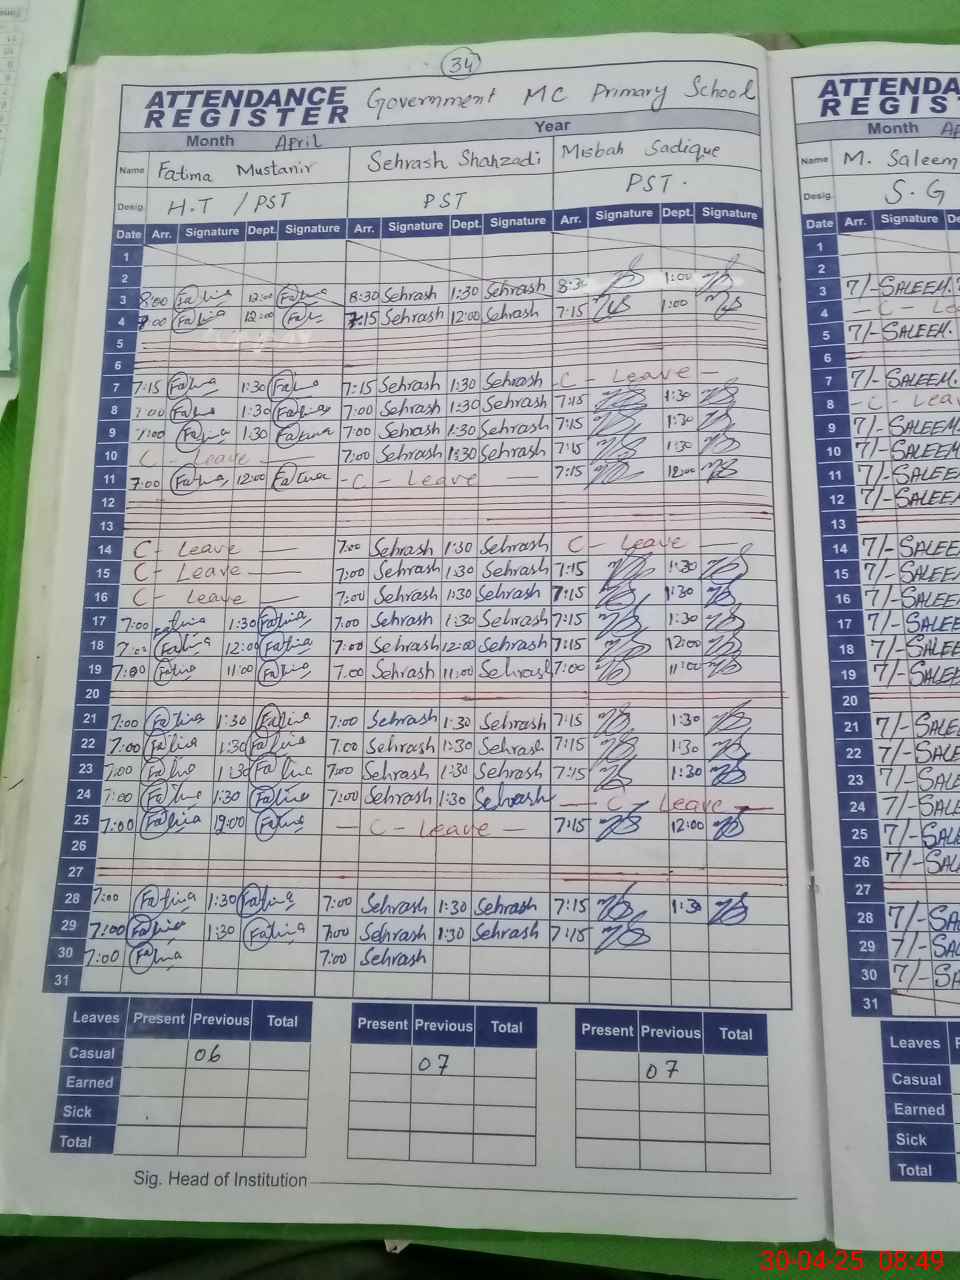 34
ATTENDANCE REGISTER Government MC Primary School
Month April Year
Name Fatima Mustanir Sehrash Shahzadi Misbah Sadique
Desig. H.T / PST PST PST.
Date Arr. Signature Dept. Signature Arr. Signature Dept. Signature Arr. Signature Dept. Signature
1
2
3 8:00 Fatima 12:00 Fatima 8:30 Sehrash 1:30 Sehrash 8:30 1:00
4 7:00 Fatima 12:00 Fatima 7:15 Sehrash 12:00 Sehrash 7:15 1:00
5
6
7 7:15 Fatima 1:30 Fatima 7:15 Sehrash 1:30 Sehrash C - Leave -
8 7:00 Fatima 1:30 Fatima 7:00 Sehrash 1:30 Sehrash 7:15 1:30
9 7:00 Fatima 1:30 Fatima 7:00 Sehrash 1:30 Sehrash 7:15 1:30
10 C - Leave — 7:00 Sehrash 1:30 Sehrash 7:15 1:30
11 7:00 Fatima 12:00 Fatima - C - Leave — 7:15 12:00
12
13
14 C - Leave — 7:00 Sehrash 1:30 Sehrash C - Leave -
15 C - Leave — 7:00 Sehrash 1:30 Sehrash 7:15 1:30
16 C - Leave — 7:00 Sehrash 1:30 Sehrash 7:15 1:30
17 7:00 Fatima 1:30 Fatima 7:00 Sehrash 1:30 Sehrash 7:15 1:30
18 7:00 Fatima 12:00 Fatima 7:00 Sehrash 12:00 Sehrash 7:15 12:00
19 7:00 Fatima 11:00 Fatima 7:00 Sehrash 11:00 Sehrash 7:00 11:00
20
21 7:00 Fatima 1:30 Fatima 7:00 Sehrash 1:30 Sehrash 7:15 1:30
22 7:00 Fatima 1:30 Fatima 7:00 Sehrash 1:30 Sehrash 7:15 1:30
23 7:00 Fatima 1:30 Fatima 7:00 Sehrash 1:30 Sehrash 7:15 1:30
24 7:00 Fatima 1:30 Fatima 7:00 Sehrash 1:30 Sehrash — C Leave —
25 7:00 Fatima 12:00 Fatima — C - Leave - 7:15 12:00
26
27
28 7:00 Fatima 1:30 Fatima 7:00 Sehrash 1:30 Sehrash 7:15 1:30
29 7:00 Fatima 1:30 Fatima 7:00 Sehrash 1:30 Sehrash 7:15
30 7:00 Fatima 7:00 Sehrash
31
Leaves Present Previous Total Present Previous Total Present Previous Total
Casual 06 07 07
Earned
Sick
Total
Sig. Head of Institution
ATTENDA
REGIST
Month Ap
Name M. Saleem
Desig. S. G
Date Arr. Signature De
1
2
3 7/- SALEEM.
4 - C - Lea
5 7/- SALEEM.
6
7 7/- SALEEM.
8 - C - Leav
9 7/- SALEEM.
10 7/- SALEEM
11 7/- SALEEM
12 7/- SALEEM
13
14 7/- SALEE
15 7/- SALEE
16 7/- SALEE
17 7/- SALEE
18 7/- SALEE
19 7/- SALEE
20
21 7/- SALE
22 7/- SALE
23 7/- SALE
24 7/- SALE
25 7/- SALE
26 7/- SAL
27
28 7/- SA
29 7/- SA
30 7/- SA
31
Leaves P
Casual
Earned
Sick
Total
30-04-25 08:49